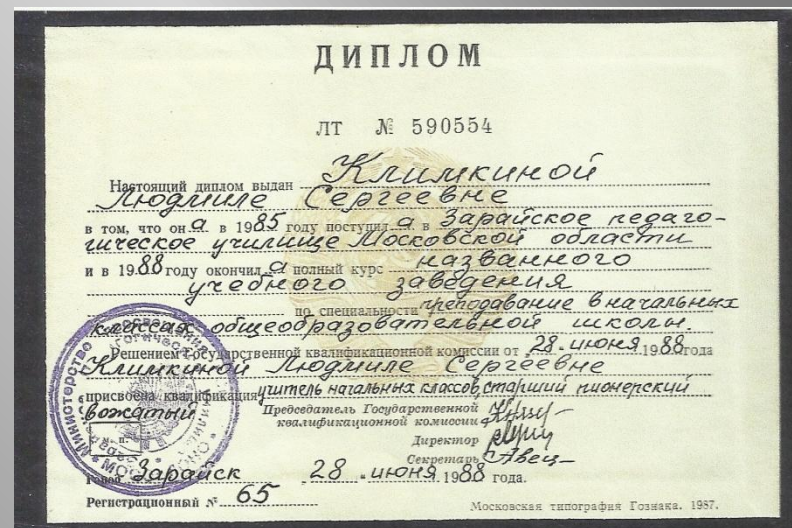 ДИПЛОМ
ЛТ № 590554
Настоящий диплом выдан Климкиной
Людмиле Сергеевне
в том, что он а в 1985 году поступил а в Зарайское педаго-
гическое училище Московской области
и в 1988 году окончил а полный курс названного
учебного заведения
по специальности преподавание в начальных
классах общеобразовательной школы.
Решением Государственной квалификационной комиссии от 28 июня 1988 года
Климкиной Людмиле Сергеевне
присвоена квалификация учитель начальных классов, старший пионерский
вожатый
Председатель Государственной
квалификационной комиссии
Директор
Секретарь
Город Зарайск 28 июня 1988 года.
Регистрационный № 65
Московская типография Гознака. 1987.